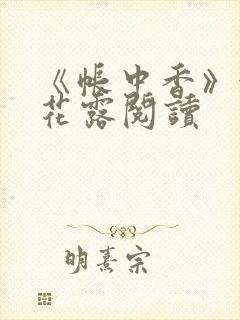 《帳中香》
花露閱讀
明熹宗